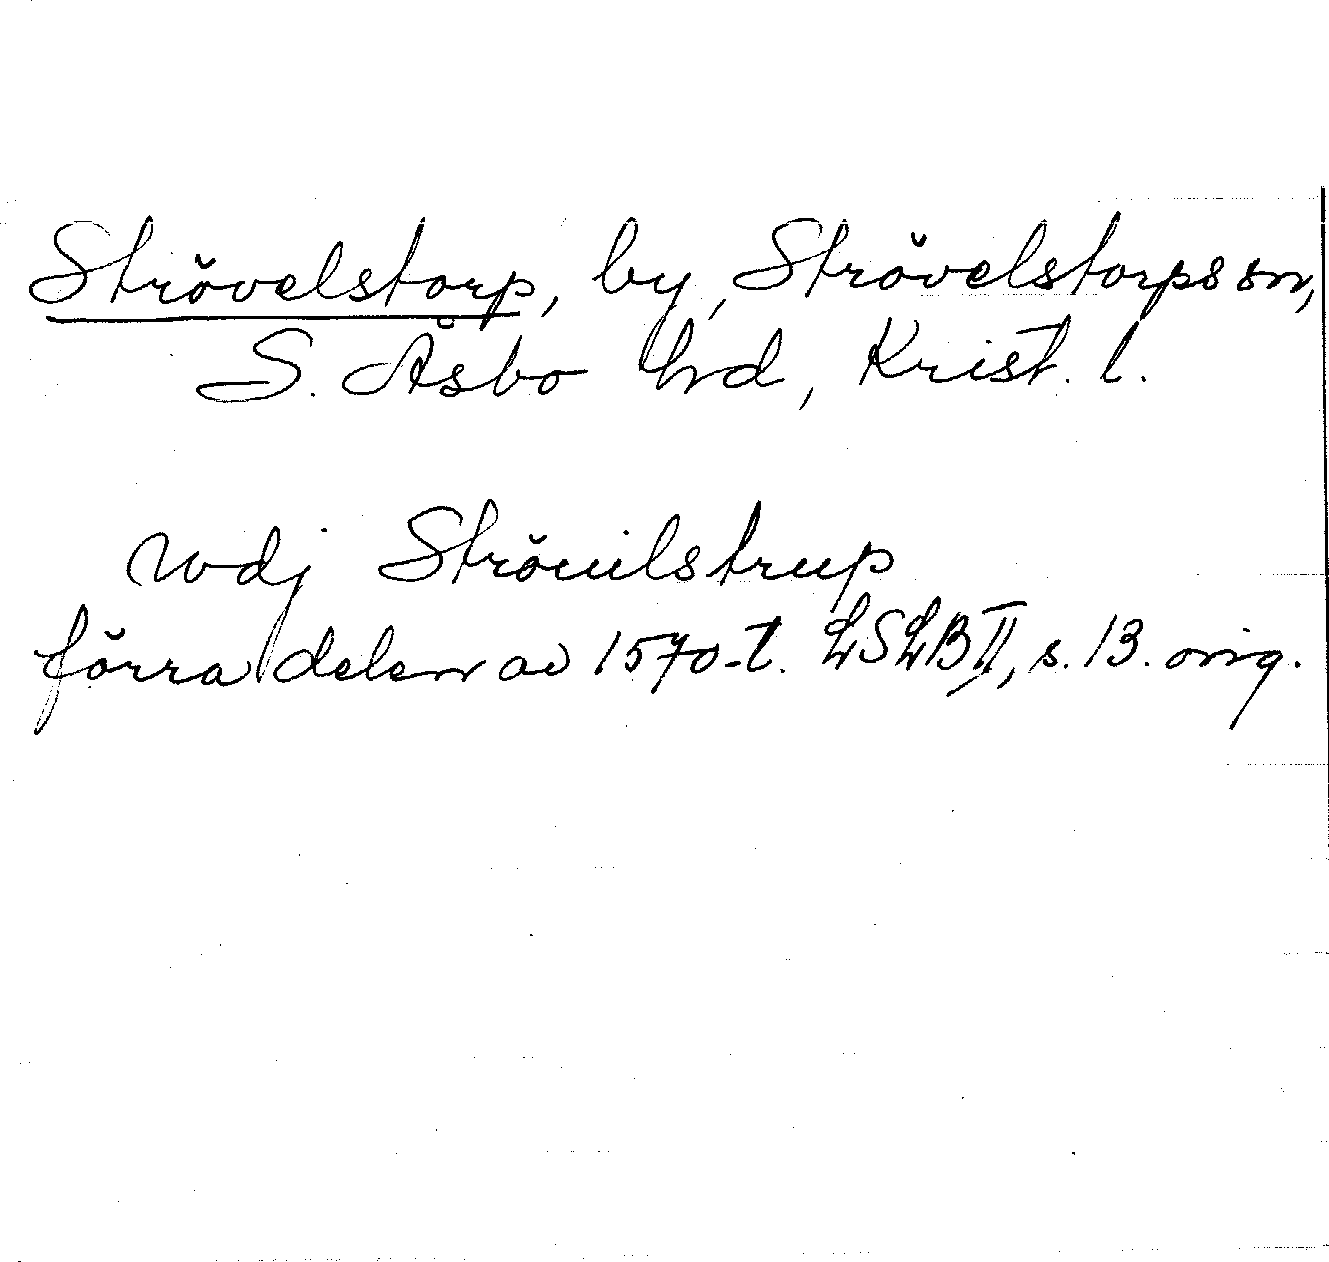 Strövelstorp, by, Strövelstorps sn,
S. Åsbo hd, Krist. l.
wdj Ströuilstrup
förra delen av 1570-t. LSLB II, s. 13. orig.